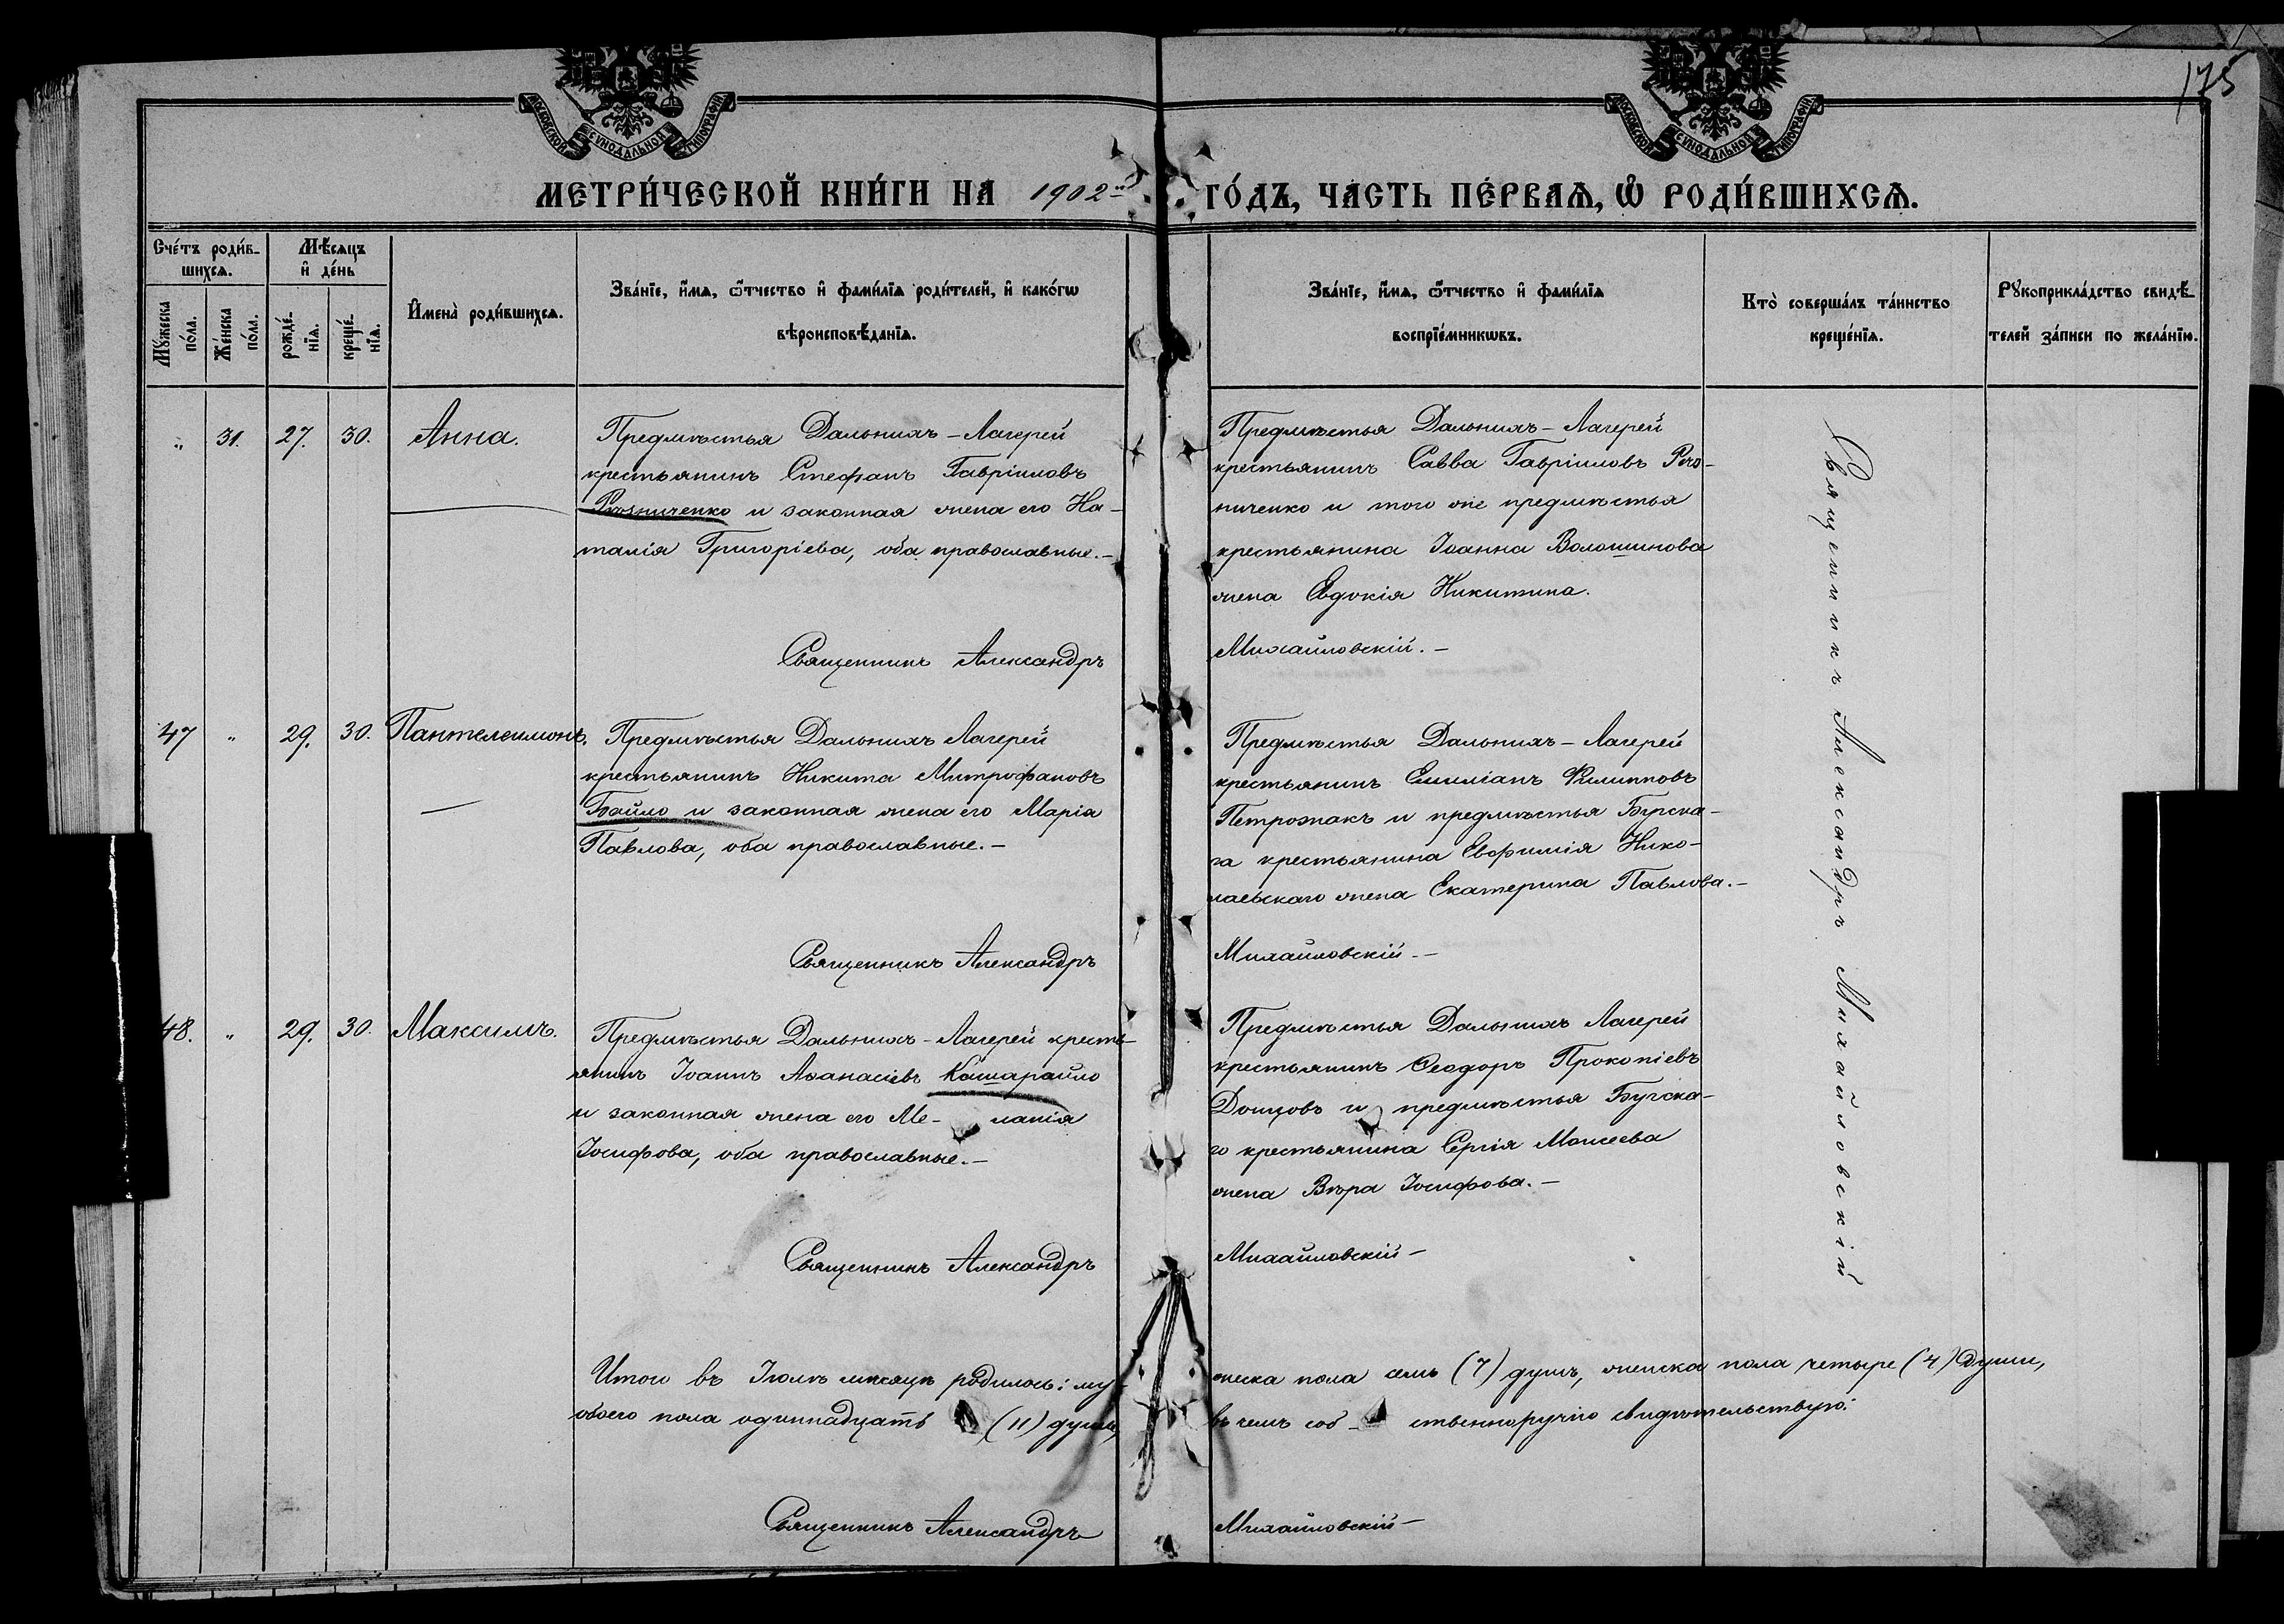 175
МОСКОВСКОЙ СѴНОДАЛЬНОЙ ТИПОГРАФІИ
МОСКОВСКОЙ СѴНОДАЛЬНОЙ ТИПОГРАФІИ
МЕТРИ́ЧЕСКОЙ КНИ́ГИ НА 1902й ГО́ДЪ, ЧА́СТЬ ПЕ́РВАѦ, Ѽ РОДИ́ВШИХСѦ.
Сче́тъ роди́в-
шихсѧ.
Мꙋ́жеска по́ла.
Же́нска по́ла.
Мѣ́сѧцъ
и҆ де́нь
рожде́-
нїѧ.
креще́-
нїѧ.
И҆мена̀ роди́вшихсѧ.
Зва́нїе, и҆́мѧ, ѻ҆́тчество и҆ фами́лїѧ роди́телей, и҆ како́гѡ
вѣроисповѣ́данїѧ.
Зва́нїе, и҆́мѧ, ѻ҆́тчество и҆ фами́лїѧ
воспрїе́мникѡвъ.
Кто̀ соверша́лъ та́инство
креще́нїѧ.
Рꙋкоприкла́дство свидѣ́-
телей за́писи по жела́нїю.
„ 31. 27. 30. Анна.
Предмѣстья Дальнихъ-Лагерей
крестьянинъ Стефанъ Гавріиловъ
Рѣзниченко и законная жена его На-
талія Григоріева, оба православные.-
Предмѣстья Дальнихъ-Лагерей
крестьянинъ Савва Гавріиловъ
ниченко и того же предмѣстья
крестьянина Іоанна Волошинова
жена Евдокія Никитина.
Священникъ Александръ Михайловскій.-
47 „ 29. 30. Пантелеимонъ.
Предмѣстья Дальнихъ Лагерей
крестьянинъ Никита Митрофановъ
Байло и законная жена его Марія
Павлова, оба православные.-
Предмѣстья Дальнихъ-Лагерей
крестьянинъ Емиліанъ Филипповъ
Петрожакъ и предмѣстья Бугска-
го крестьянина Евфимія Нико-
лаевскаго жена Екатерина Павлова.-
Священникъ Александръ Михайловскій.-
48. „ 29. 30. Максимъ.
Предмѣстья Дальнихъ-Лагерей кресть-
янинъ Іоаннъ Аѳанасіевъ Кашарайло
и законная жена его Ме- ланія
Іосифова, оба православные.-
Предмѣстья Дальнихъ Лагерей
крестьянинъ Ѳеодоръ Прокопіевъ
Донцовъ и предмѣстья Бугска-
го крестьянина Сергія Моисеева
жена Вѣра Іосифова.-
Священникъ Александръ Михайловскій-
Священникъ Александръ Михайловскій
Итого въ Іюлѣ мѣсяцѣ родилось: му- жеска пола семь (7) душъ, женска пола четыре (4) души,
обоего пола одиннадцать (11) душъ, въ чемъ соб- ственноручно свидѣтельствую:
Священникъ Александръ Михайловскій-